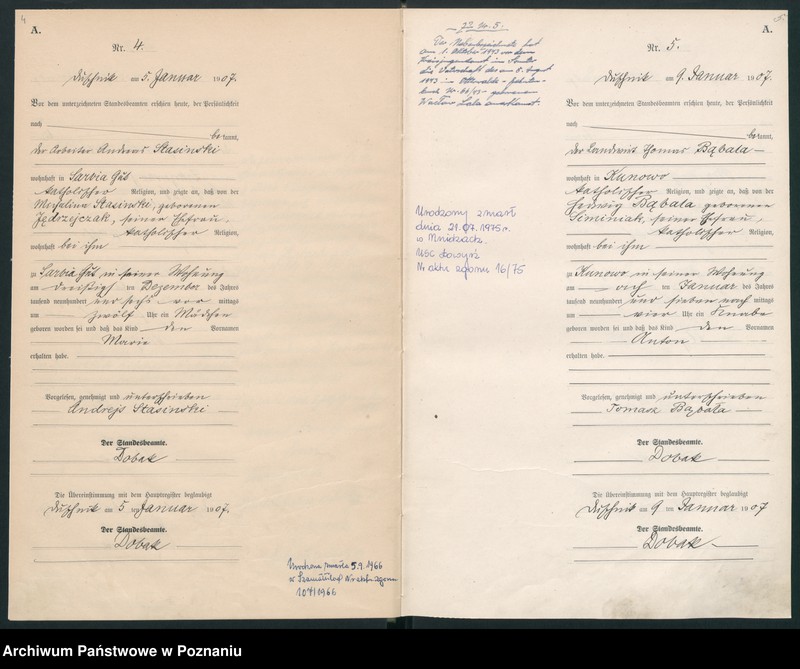 4
A.
Nr. 4.
Duschnik am 5. Januar 1907.
Vor dem unterzeichneten Standesbeamten erschien heute, der Persönlichkeit
nach
bekannt,
der Arbeiter Andreas Stasinski
wohnhaft in Sarbia Gut
katholischer Religion, und zeigte an, daß von der
Michalina Stasinski, geborenen
Jędrzejczak, seiner Ehefrau,
katholischer Religion,
wohnhaft bei ihm
zu Sarbia Gut in seiner Wohnung
am dreißigsten Dezember des Jahres
tausend neunhundert und sechs vormittags
um zwölf Uhr ein Mädchen
geboren worden sei und daß das Kind den Vornamen
Marie
erhalten habe.
Vorgelesen, genehmigt und unterschrieben
Andrejs Stasinski
Der Standesbeamte.
Dobak
Die Übereinstimmung mit dem Hauptregister beglaubigt
Duschnik am 5 ten Januar 1907.
Der Standesbeamte.
Dobak
zmarła 5.9.1966
w Szamotułach Nr aktu zgonu
104/1966
5.
A.
am 1. Oktober 1943 vor dem
die Vaterschaft des am 8. August
1943 in
anerkannt.
Urodzony zmarł
dnia 21.07.1975 r.
w
USC
Nr aktu zgonu 16/75
Nr. 5.
Duschnik am 9. Januar 1907.
Vor dem unterzeichneten Standesbeamten erschien heute, der Persönlichkeit
nach
bekannt,
der Landwirt Thomas Bąbala
wohnhaft in Kunowo
katholischer Religion, und zeigte an, daß von der
Hedwig Bąbala geborenen
Siminiak, seiner Ehefrau,
katholischer Religion,
wohnhaft bei ihm
zu Kunowo in seiner Wohnung
am acht ten Januar des Jahres
tausend neunhundert und sieben nachmittags
um vier Uhr ein Knabe
geboren worden sei und daß das Kind den Vornamen
Anton
erhalten habe.
Vorgelesen, genehmigt und unterschrieben
Tomasz Bąbała
Der Standesbeamte.
Dobak
Die Übereinstimmung mit dem Hauptregister beglaubigt
Duschnik am 9 ten Januar 1907
Der Standesbeamte.
Dobak
Archiwum Państwowe w Poznaniu